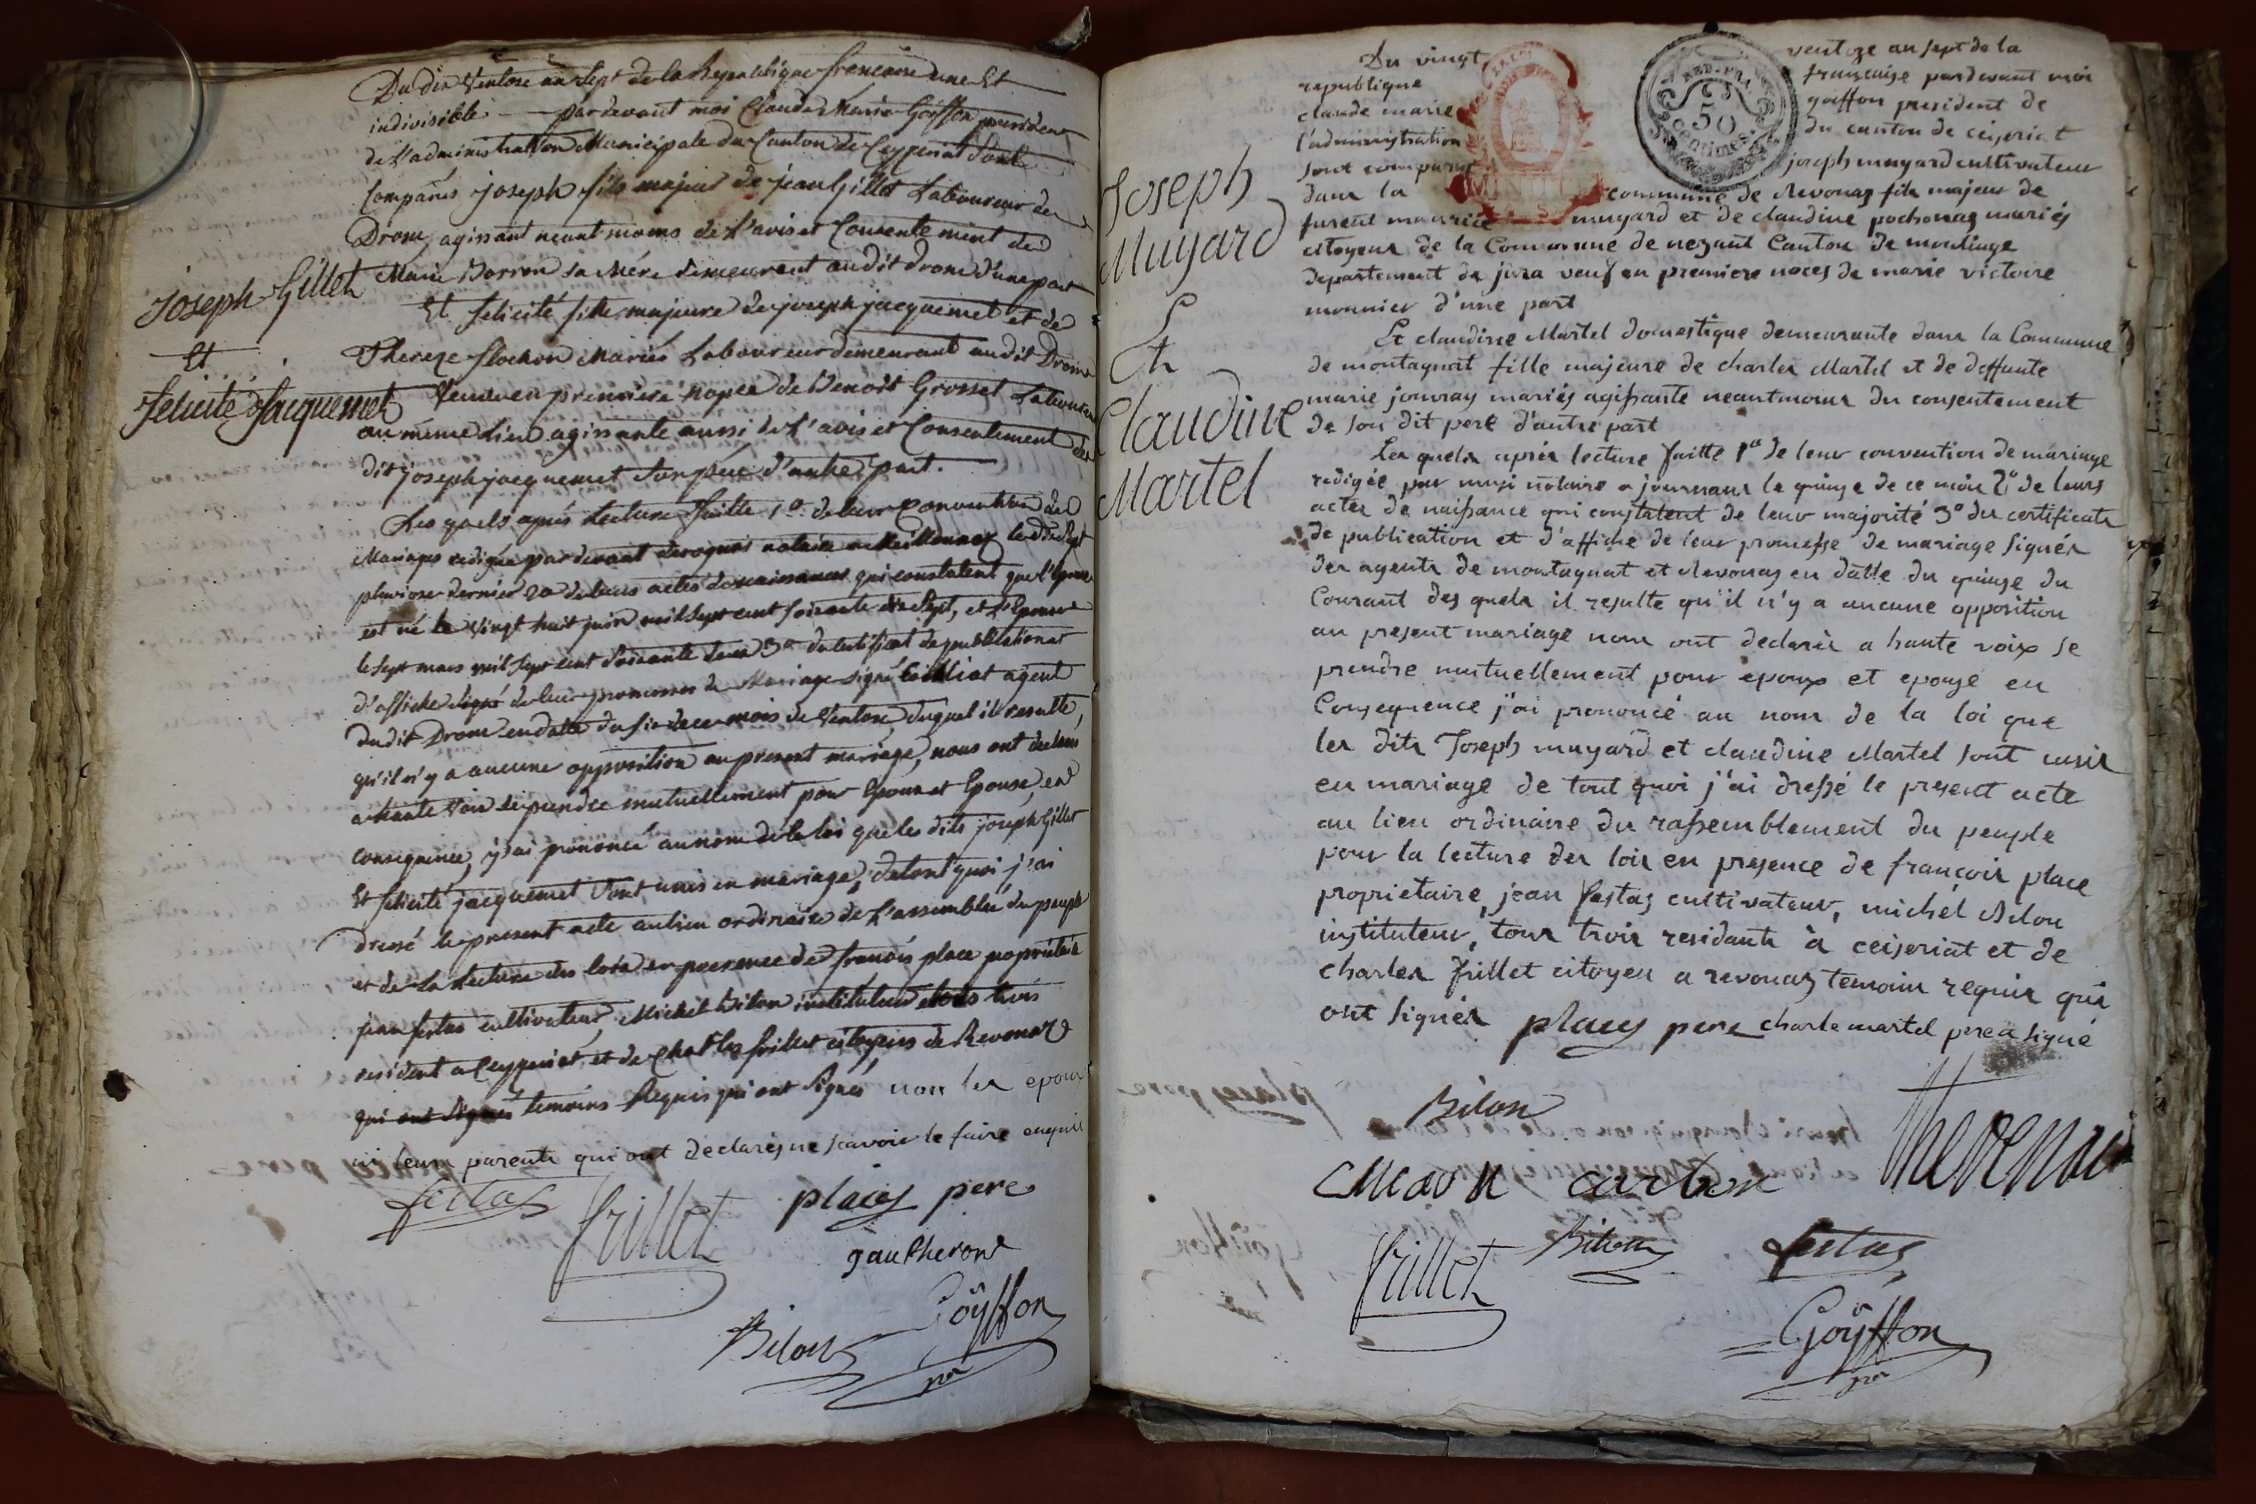 Du dix Ventose an Sept de la Republique francaise une Et
indivisible pardevant moi Claude Marie Goiffon president
de l'administration Municipale du Canton de Ceyzeriat Sont
Comparus joseph fils majeur de jean Gillet Laboureur de
Drom, agissant neant moins de l'avis et Consentement de
Marie Borron sa Mére demeurant audit drom d'une part
Et felicité fille majeure de joseph jacquemet et de
Thereze flochon Mariés Laboureur demeurant audit Drom
Veuve en premiére nopce de Benoit Grosset Laboureur
au même Lieu agissante aussi de l'avis et Consentement du
dit joseph jacquemet Son pére d'autre part.
Joseph Gillet
Et
felicité Jacquemet
Les quels aprés Lecture faitte 1o. de leur Convention de
Mariages redigée par devant notaire a le dix Sept
pluviose dernier 2o de leurs actes de naissances qui constatent que l'Epoux
est né le Vingt huit juin mil Sept cent soixante dix Sept, et l'Epouse
le Sept mars mil Sept cent Soixante 3o du Certificat de publication et
d'affiche signé de leur promesses de Mariage signé agent
dudit Drom en datte du Six de ce mois de Ventose, duquel il resulte,
qu'il n'y a aucune opposition au present mariage, nous ont declarés
a haute Voix se prendre mutuellement pour Epoux et Epouse, en
consequence, j'ai prononcé au nom de la loi que les dits joseph Gillet
Et felicité jacquemet Sont unis en mariage, de tout quoi j'ai
dressé le present acte au lieu ordinaire de L'assemblée du peuple
et de La Lecture des loix en presence de francois place propriétaire
jean festas cultivateur, Michel Bilon instituteur tous trois
resident a Ceyzeriat et de Charles frillet citoyens de Revonaz
qui ont Signés temoins Requis qui ont Signés non les epoux
ni leurs parents qui ont declarés ne scavoir le faire enquis
festas frillet places pere
gautheron
Bilon Goÿffon
pnt
Du vingt ventoze an sept de la
republique françaize pardevant moi
claude marie goiffon president de
l'administration du canton de ceizeriat
sont comparut joseph muyard cultivateur
dans la commune de Revonaz fils majeur de
furent maurice muyard et de claudine pochonaz mariés
citoyens de la Commune de nezant Canton de montinge
departement du jura veuf en premiere noces de marie victoire
monnier d'une part
Joseph
Muyard
Et
Claudine
Martel
Et claudine Martel domestique demeurante dans la Commune
de montagnat fille majeure de charles Martel et de deffunte
marie jouvray mariés agissante neantmoins du consentement
de son dit pere d'autre part
Les quels après lecture faitte 1o de leur convention de mariage
redigée par notaire a journans le quinze de ce mois 2o de leurs
actes de naissance qui constatent de leur majorité 3o des certificats
de publication et d'affiche de leur promesse de mariage signés
des agents de montagnat et Revonaz en datte du quinze du
Courant des quels il resulte qu'il n'y a aucune opposition
au present mariage nous ont declarés a haute voix se
prendre mutuellement pour epoux et epouze en
Consequence j'ai prononcé au nom de la loi que
les dits Joseph muyard et claudine Martel sont unis
en mariage de tout quoi j'ai dressé le present acte
au lieu ordinaire du rassemblement du peuple
pour la lecture des loix en presence de francois place
proprietaire, jean festaz cultivateur, michel Bilon
instituteur, tous trois residants à ceizeriat et de
charles frillet citoyen a revonaz temoins requis qui
ont signés places pere charle martel pere a signé
Bilon
carbon thevenin
frillet Bilon festas
Goÿffon
pnt
REP. FRA.
50
centimes